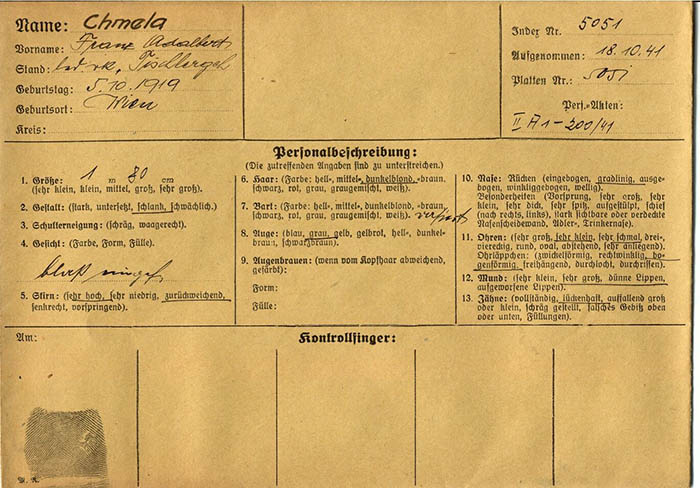 Name: Chmela
Vorname: Franz Adalbert
Stand: led. rk. Tischlergeh
Geburtstag: 5.10.1919
Geburtsort: Wien
Kreis:
Index Nr. 5051
Aufgenommen: 18.10.41
Platten Nr.: 5051
Pers.-Akten:
II A1-200/41
Personalbeschreibung:
(Die zutreffenden Angaben sind zu unterstreichen.)
1. Größe: 1 m 80 cm
(sehr klein, klein, mittel, groß, sehr groß).
2. Gestalt: (stark, untersetzt, schlank, schwächlich).
3. Schulterneigung: (schräg, waagerecht).
4. Gesicht: (Farbe, Form, Fülle).
5. Stirn: (sehr hoch, sehr niedrig, zurückweichend,
senkrecht, vorspringend).
6. Haar: (Farbe: hell-, mittel-, dunkelblond, -braun,
schwarz, rot, grau, graugemischt, weiß).
7. Bart: (Farbe: hell-, mittel-, dunkelblond, -braun,
schwarz, rot, grau, graugemischt, weiß).
8. Auge: (blau, grau, gelb, gelbrot, hell-, dunkel-
braun, schwarzbraun).
9. Augenbrauen: (wenn vom Kopfhaar abweichend,
gefärbt):
Form:
Fülle:
10. Nase: Rücken (eingebogen, gradlinig, ausge-
bogen, winkliggebogen, wellig).
Besonderheiten (Vorsprung, sehr groß, sehr
klein, sehr dick, sehr spitz, aufgestülpt, schief
(nach rechts, links), stark sichtbare oder verdeckte
Nasenscheidewand, Adler-, Trinkernase).
11. Ohren: (sehr groß, sehr klein, sehr schmal, drei-
viereckig, rund, oval, abstehend, sehr anliegend).
Ohrläppchen: (zwickelförmig, rechtwinklig, bo-
genförmig, freihängend, durchlocht, durchrissen).
12. Mund: (sehr klein, sehr groß, dünne Lippen,
aufgeworfene Lippen).
13. Zähne: (vollständig, lückenhaft, auffallend groß
oder klein, schräg gestellt, falsches Gebiß oben
oder unten, Füllungen).
Am:
Kontrollfinger:
W. K.